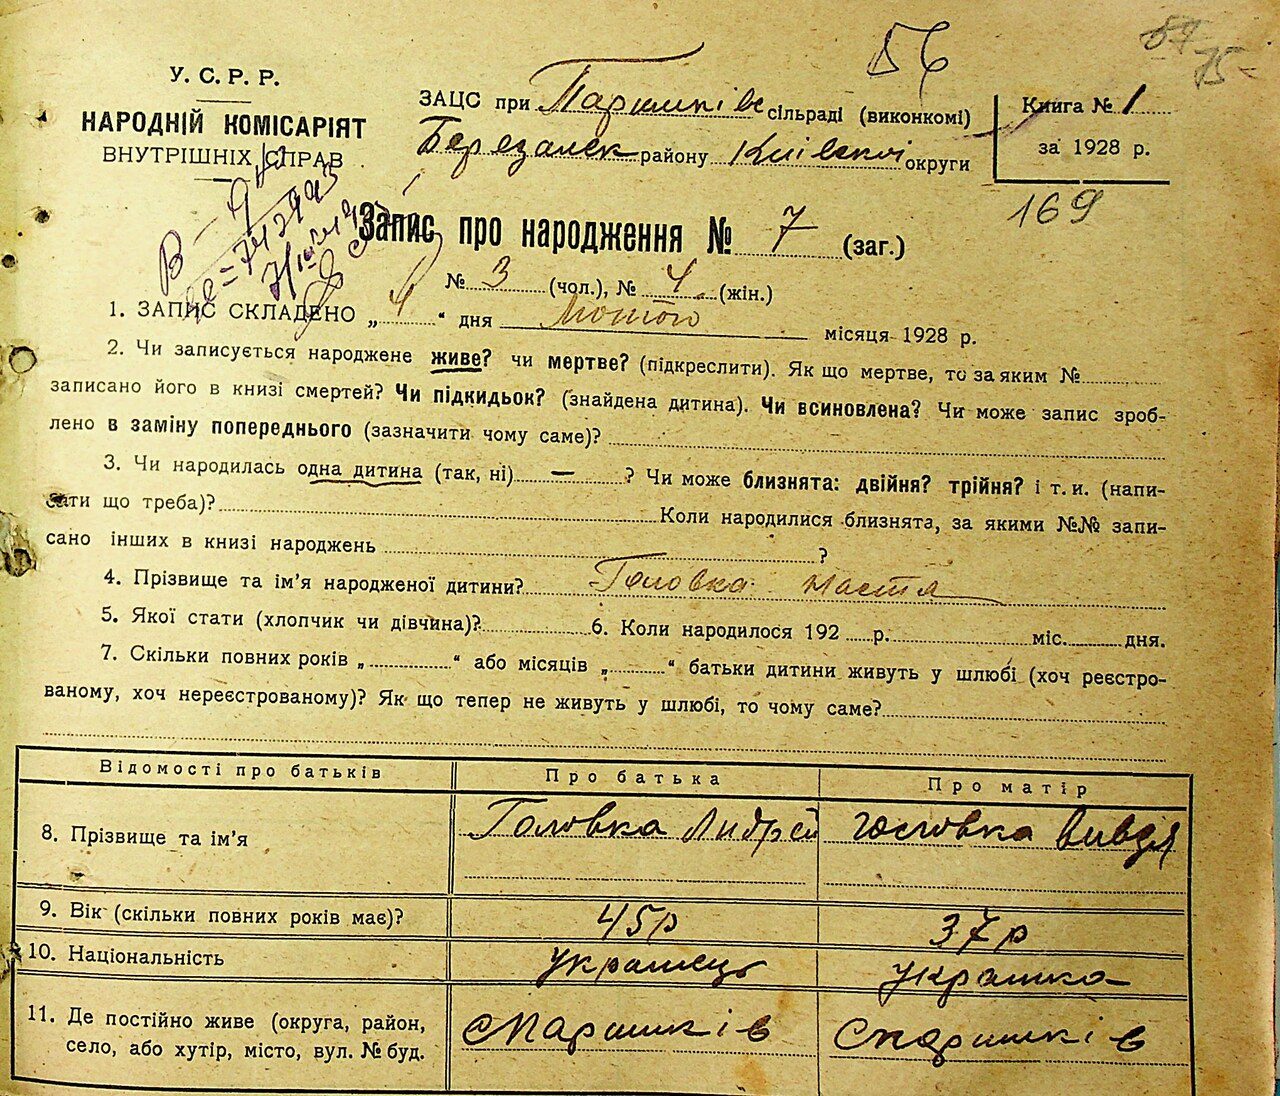 56
У. С. Р. Р.
НАРОДНІЙ КОМІСАРІЯТ
ВНУТРІШНІХ СПРАВ
ЗАЦС при Паришків сільраді (виконкомі)
Березанск району Київської округи
Книга № 1
за 1928 р.
169
Запис про народження № 7 (заг.)
№ 3 (чол.), № 4 (жін.)
1. ЗАПИС СКЛАДЕНО „ 4 “ дня Лютого місяця 1928 р.
2. Чи записується народжене живе? чи мертве? (підкреслити). Як що мертве, то за яким №
записано його в книзі смертей? Чи підкидьок? (знайдена дитина). Чи всиновлена? Чи може запис зроб-
лено в заміну попереднього (зазначити чому саме)?
3. Чи народилась одна дитина (так, ні) — ? Чи може близнята: двійня? трійня? і т. и. (напи-
сати що треба)? Коли народилися близнята, за якими №№ запи-
сано інших в книзі народжень ?
4. Прізвище та ім’я народженої дитини? Головка Настя
5. Якої стати (хлопчик чи дівчина)? 6. Коли народилося 192 р. міс. дня.
7. Скільки повних років „ “ або місяців „ “ батьки дитини живуть у шлюбі (хоч реєстро-
ваному, хоч нереєстрованому)? Як що тепер не живуть у шлюбі, то чому саме?
Відомості про батьків Про батька Про матір
8. Прізвище та ім’я Головка Андрей Головка Вивдя
9. Вік (скільки повних років має)? 45р 37р
10. Національність Українець Українка
11. Де постійно живе (округа, район,
село, або хутір, місто, вул. № буд.
с Паришків с Паришків